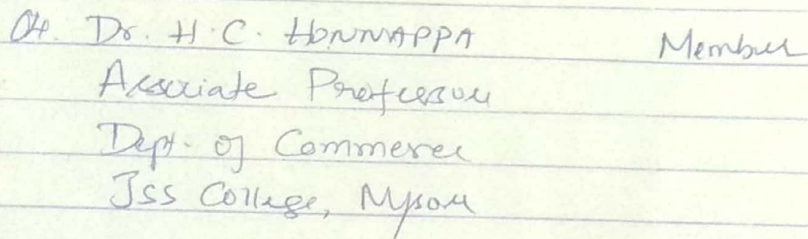 04. Dr. H.C. HONNAPPA Member
Associate Professor
Dept. of Commerce
JSS College, Mysore